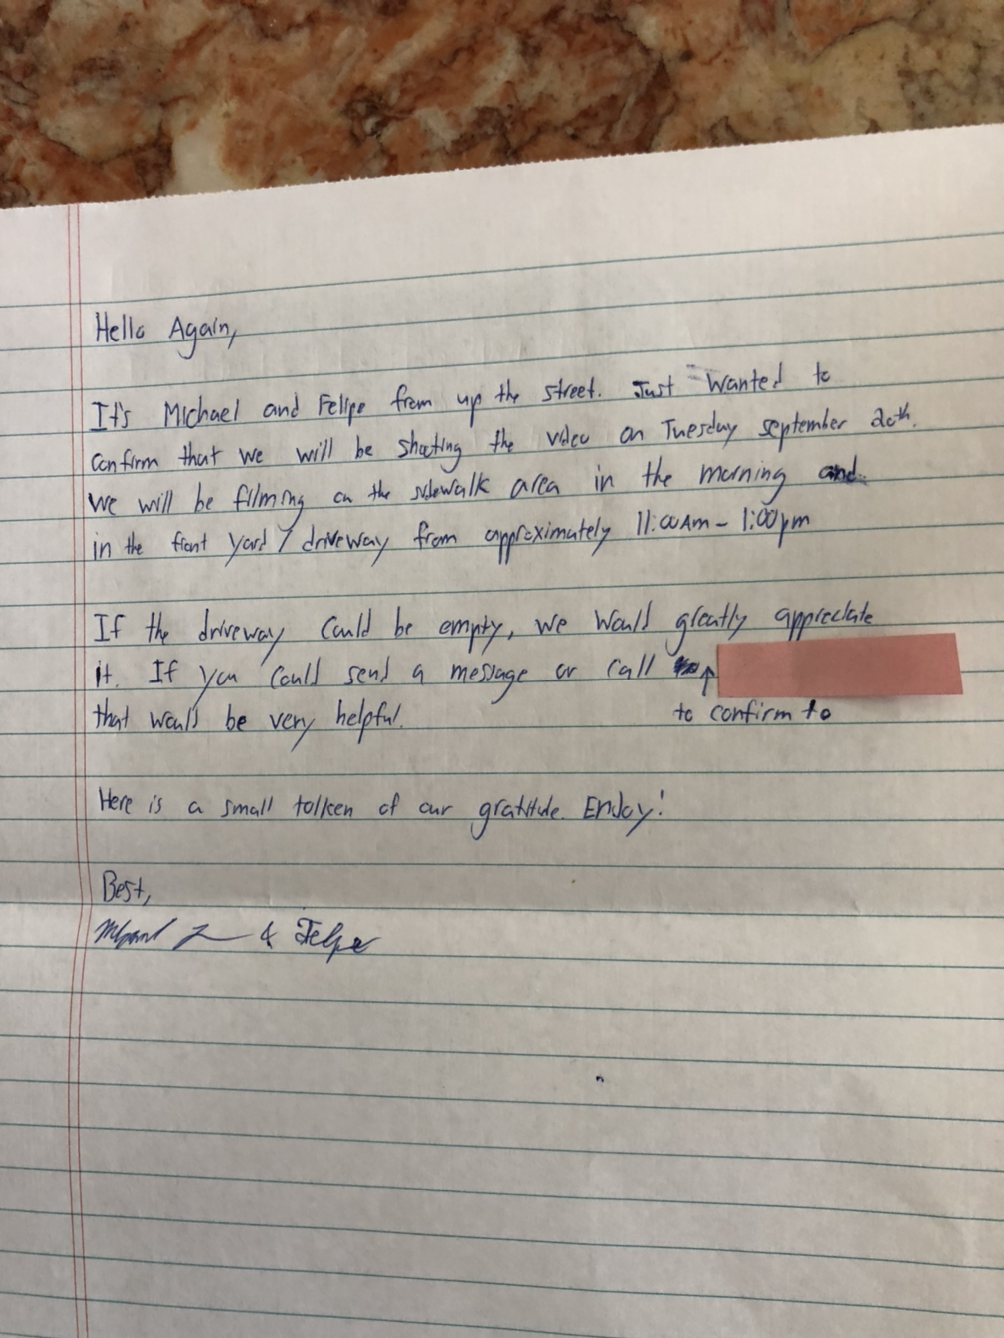 Hello Again,
It's Michael and Felipe from up the street. Just wanted to
confirm that we will be shooting the video on Tuesday September 20th.
We will be filming on the sidewalk area in the morning and
in the front yard / driveway from approximately 11:00AM - 1:00pm
If the driveway could be empty, we would greatly appreciate
it. If you could send a message or call ↑
that would be very helpful. to confirm to
Here is a small tolken of our gratitude. Enjoy!
Best,
& Felipe